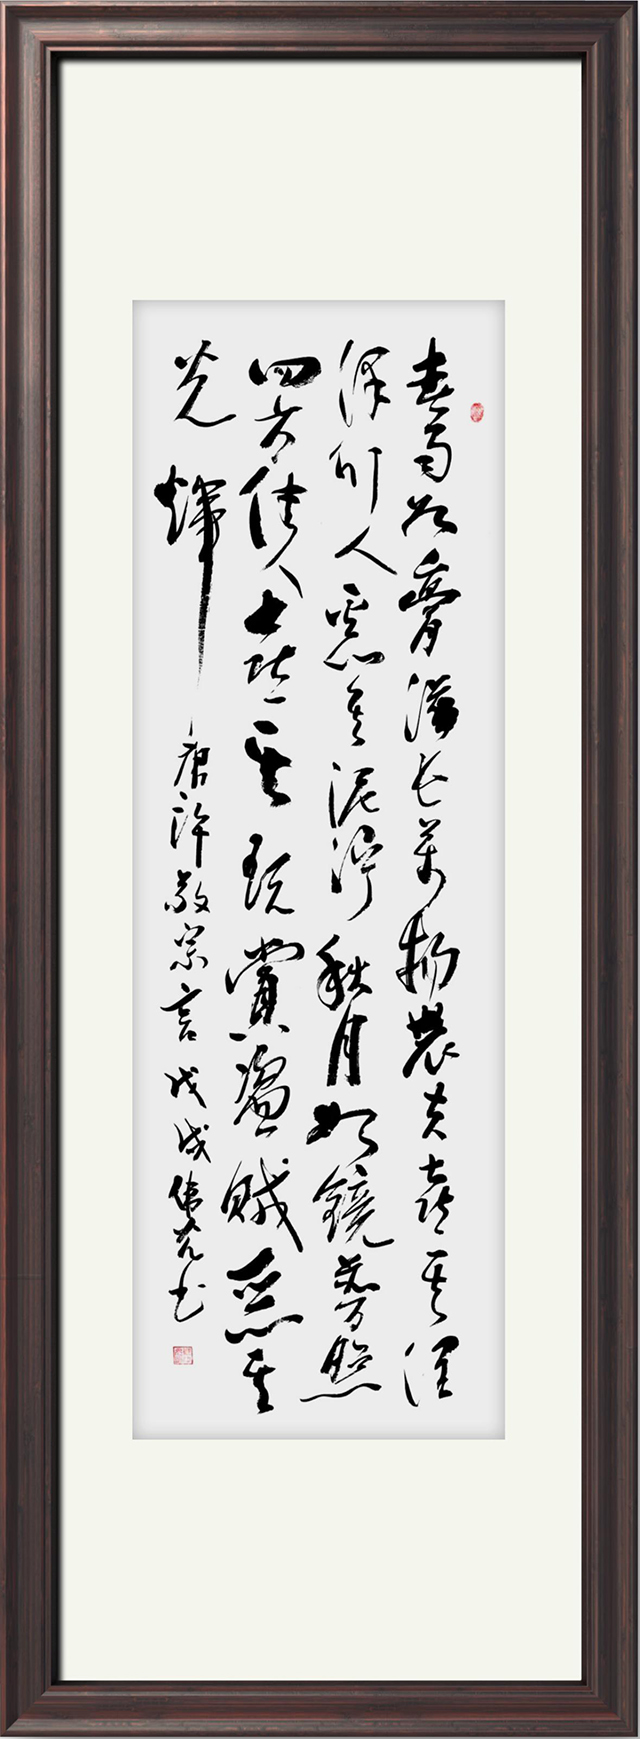 春雨如膏滋長萬物農夫喜其潤
澤行人惡其泥濘秋月如鏡普照
四方佳人喜其玩賞盜賊惡其
光輝
唐許敬宗言戊戌書